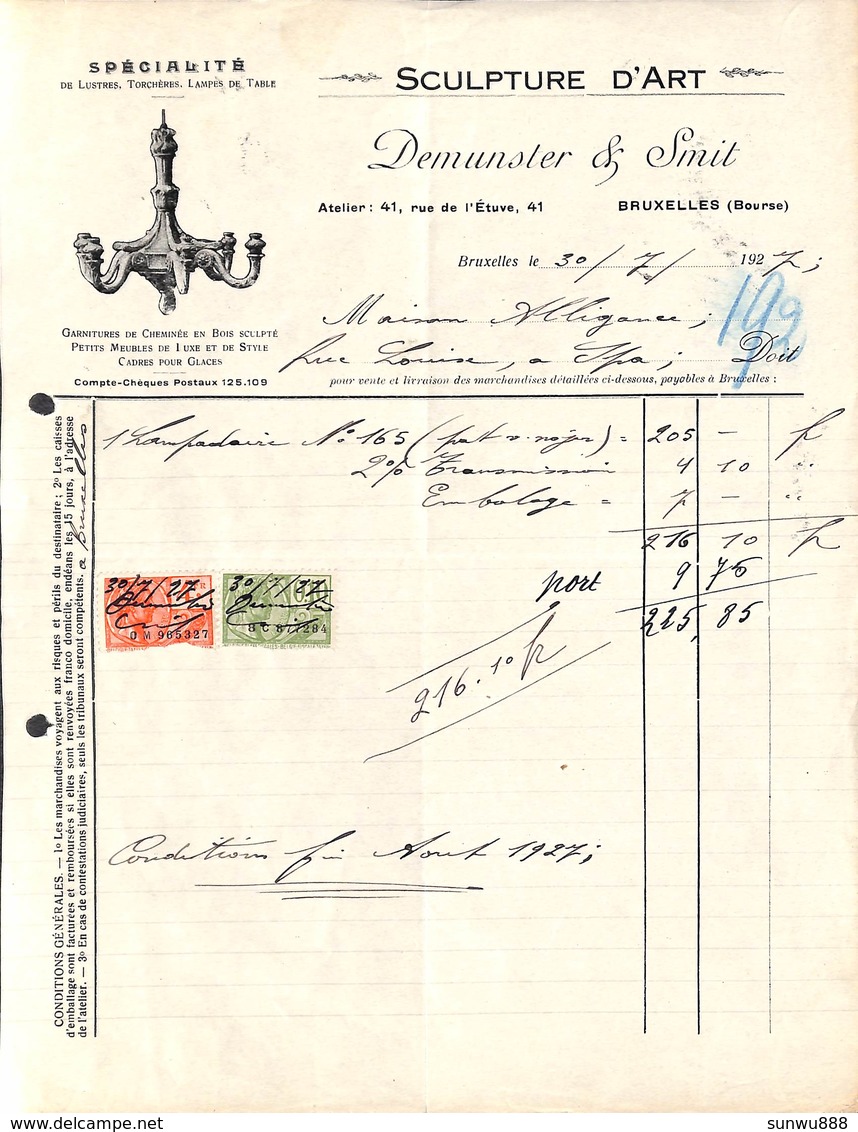 SPÉCIALITÉ
DE LUSTRES, TORCHÈRES, LAMPES DE TABLE
SCULPTURE D'ART
Demunster & Smit
Atelier : 41, rue de l'Étuve, 41 BRUXELLES (Bourse)
Bruxelles le 30/7/ 1927;
Maison Alligance;
Rue Louise, a Spa; Doit
192
pour vente et livraison des marchandises détaillées ci-dessous, payables à Bruxelles :
GARNITURES DE CHEMINÉE EN BOIS SCULPTÉ
PETITS MEUBLES DE LUXE ET DE STYLE
CADRES POUR GLACES
Compte-Chèques Postaux 125.109
1 Lampadaire No 165 (pat. v. noyer) = 205 – fr
2% Transmission 4 10 "
Embalage = 7 – "
216 10 fr
port 9 75
225,85
30/7/27
OM 965327
30/7/27
8C 877284
216.10 fr
Conditions fin Aout 1927;
CONDITIONS GÉNÉRALES. — 1o Les marchandises voyagent aux risques et périls du destinataire ; 2o Les caisses
d'emballage sont facturées et remboursées si elles sont renvoyées franco domicile, endéans les 15 jours, à l'adresse
de l'atelier. — 3o En cas de contestations judiciaires, seuls les tribunaux seront compétents. a Bruxelles
delcampe.net
sunwu888